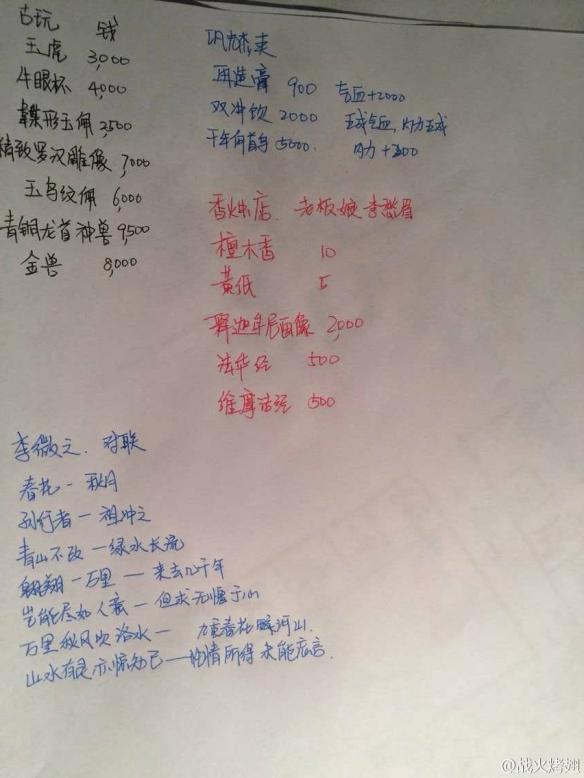 古玩 钱
玉虎 3,000
牛眼杯 4,000
蝶形玉佩 2,500
精致罗汉雕像 7,000
玉鸟纹佩 6,000
青铜龙首神兽 9,500
金兽 8,000
再造膏 900 气血+2000
双冲饮 2000 五成气血,内力五成
千年何首乌 5000. 内力+300
香烛店. 老板娘 李翠眉
檀木香 10
黄低 5
释迦牟尼画像 2,000
法华经 500
维摩诘经 500
李微之. 对联
春花-秋月
孙行者-祖冲之
青山不改-绿水长流
翱翔一万里—来去几千年
岂能尽如人意-但求无愧于心
万里秋风吹洛水- 九重春花暖河山.
山水有灵亦惊知己—性情所得未能忘言.
@战火烤翅